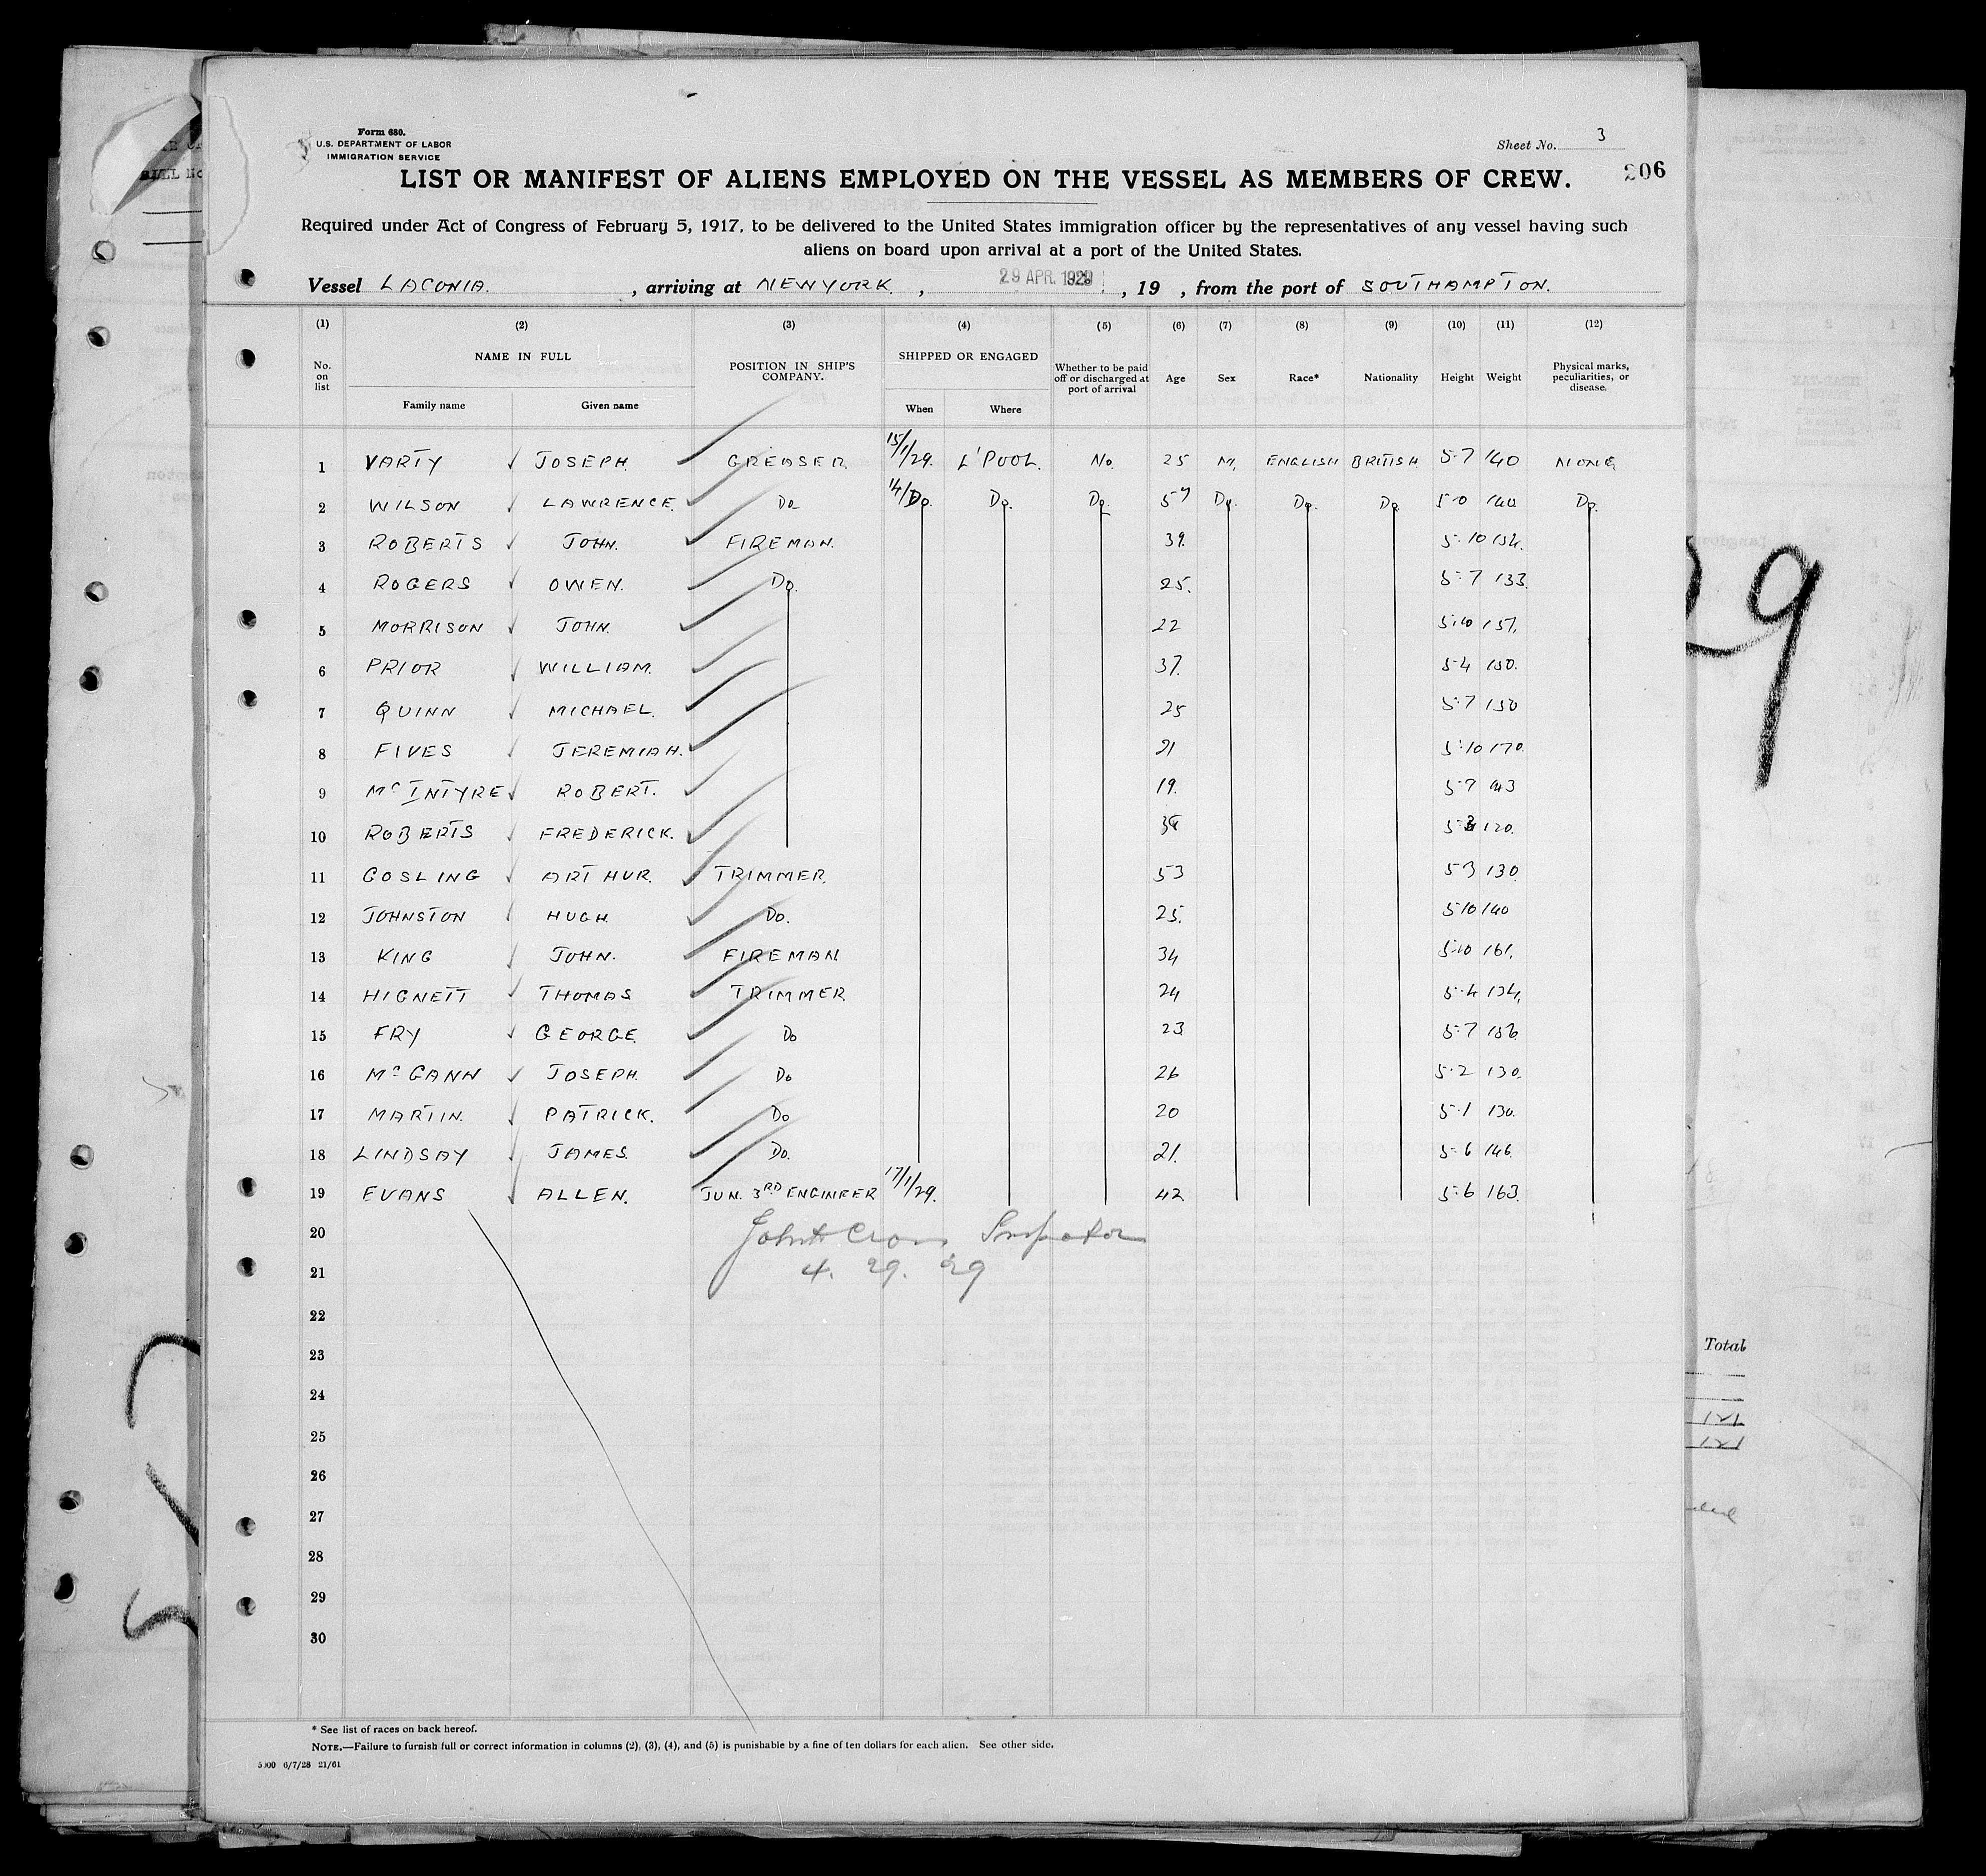 Form 680.
U.S. DEPARTMENT OF LABOR
IMMIGRATION SERVICE
Sheet No. 3
206
LIST OR MANIFEST OF ALIENS EMPLOYED ON THE VESSEL AS MEMBERS OF CREW.
Required under Act of Congress of February 5, 1917, to be delivered to the United States immigration officer by the representatives of any vessel having such
aliens on board upon arrival at a port of the United States.
Vessel LACONIA. , arriving at NEW YORK. , 29 APR. 1929 , 19 , from the port of SOUTHAMPTON.
(1) (2) (3) (4) (5) (6) (7) (8) (9) (10) (11) (12)
No. on list NAME IN FULL POSITION IN SHIP'S COMPANY. SHIPPED OR ENGAGED Whether to be paid off or discharged at port of arrival Age Sex Race* Nationality Height Weight Physical marks, peculiarities, or disease.
Family name Given name When Where
1 VARTY JOSEPH. GREASER 15/1/29. L'POOL. No. 25 M. ENGLISH BRITISH 5-7 140 NONE
2 WILSON LAWRENCE. Do 14/Do. Do. Do. 57 Do. Do. Do. 5-0 140 Do.
3 ROBERTS JOHN. FIREMAN. 39. 5-10 154.
4 ROGERS OWEN. Do. 25. 5-7 133.
5 MORRISON JOHN. 22 5-10 151.
6 PRIOR WILLIAM. 37. 5-4 150.
7 QUINN MICHAEL. 25 5-7 150
8 FIVES JEREMIAH. 21 5-10 170.
9 McINTYRE ROBERT. 19. 5-7 143
10 ROBERTS FREDERICK. 120.
11 GOSLING ARTHUR. TRIMMER. 53 5-3 130.
12 JOHNSTON HUGH. Do. 25. 5-10 140
13 KING JOHN. FIREMAN 34 5-10 161.
14 HIGNETT THOMAS TRIMMER. 24 5-4 134.
15 FRY GEORGE. Do 23 5-7 156.
16 McGANN JOSEPH. Do 26 5-2 130.
17 MARTIN. PATRICK. Do 20 5-1 130.
18 LINDSAY JAMES. Do. 21. 5-6 146.
19 EVANS ALLEN. JUN. 3RD ENGINEER 17/1/29. 42 5-6 163.
20 John Cross Inspector
21 4. 29. 29
22
23
24
25
26
27
28
29
30
* See list of races on back hereof.
NOTE.—Failure to furnish full or correct information in columns (2), (3), (4), and (5) is punishable by a fine of ten dollars for each alien. See other side.
5000 6/7/28 21/61
29
Total
121
121